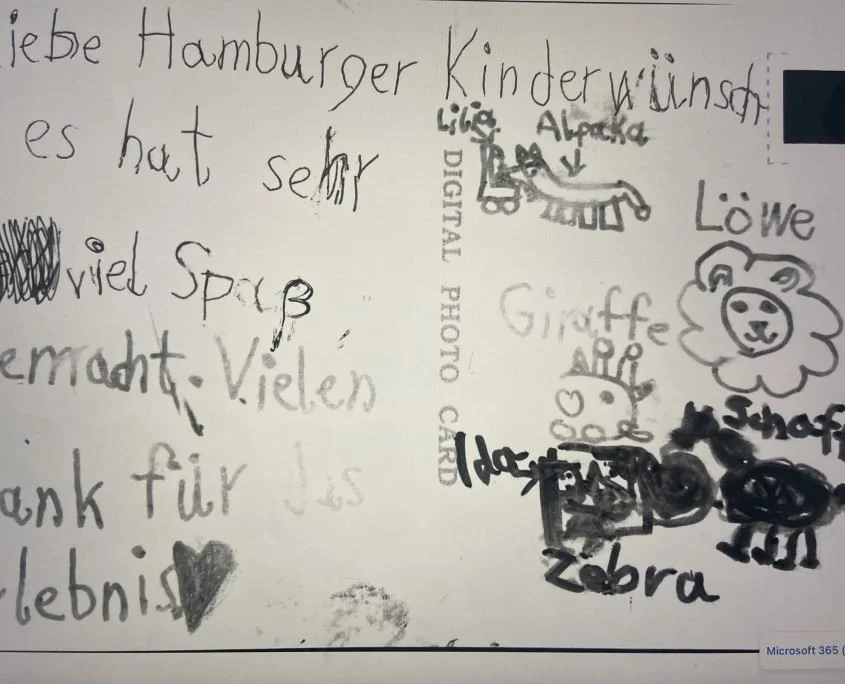 iebe Hamburger Kinderwünsch
es hat sehr
viel Spaß
emacht. Vielen
ank für das
lebnis
Lilia
Alpaka
DIGITAL PHOTO CARD
Löwe
Giraffe
Schaf
Ida
Zebra
Microsoft 365 (